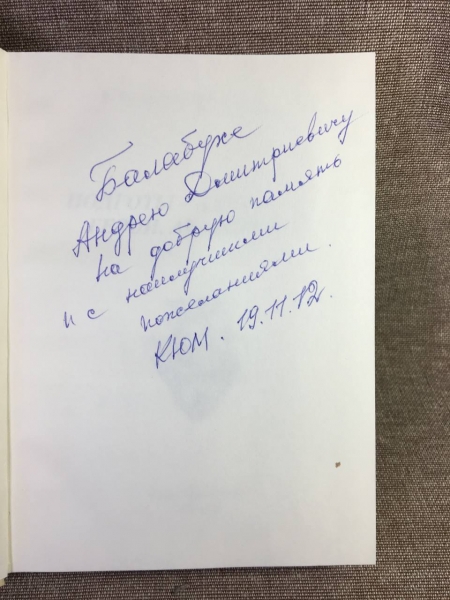 Балабухе
Андрею Дмитриевичу
на добрую память
и с наилучшими
пожеланиями.
КЮМ. 19.11.12.